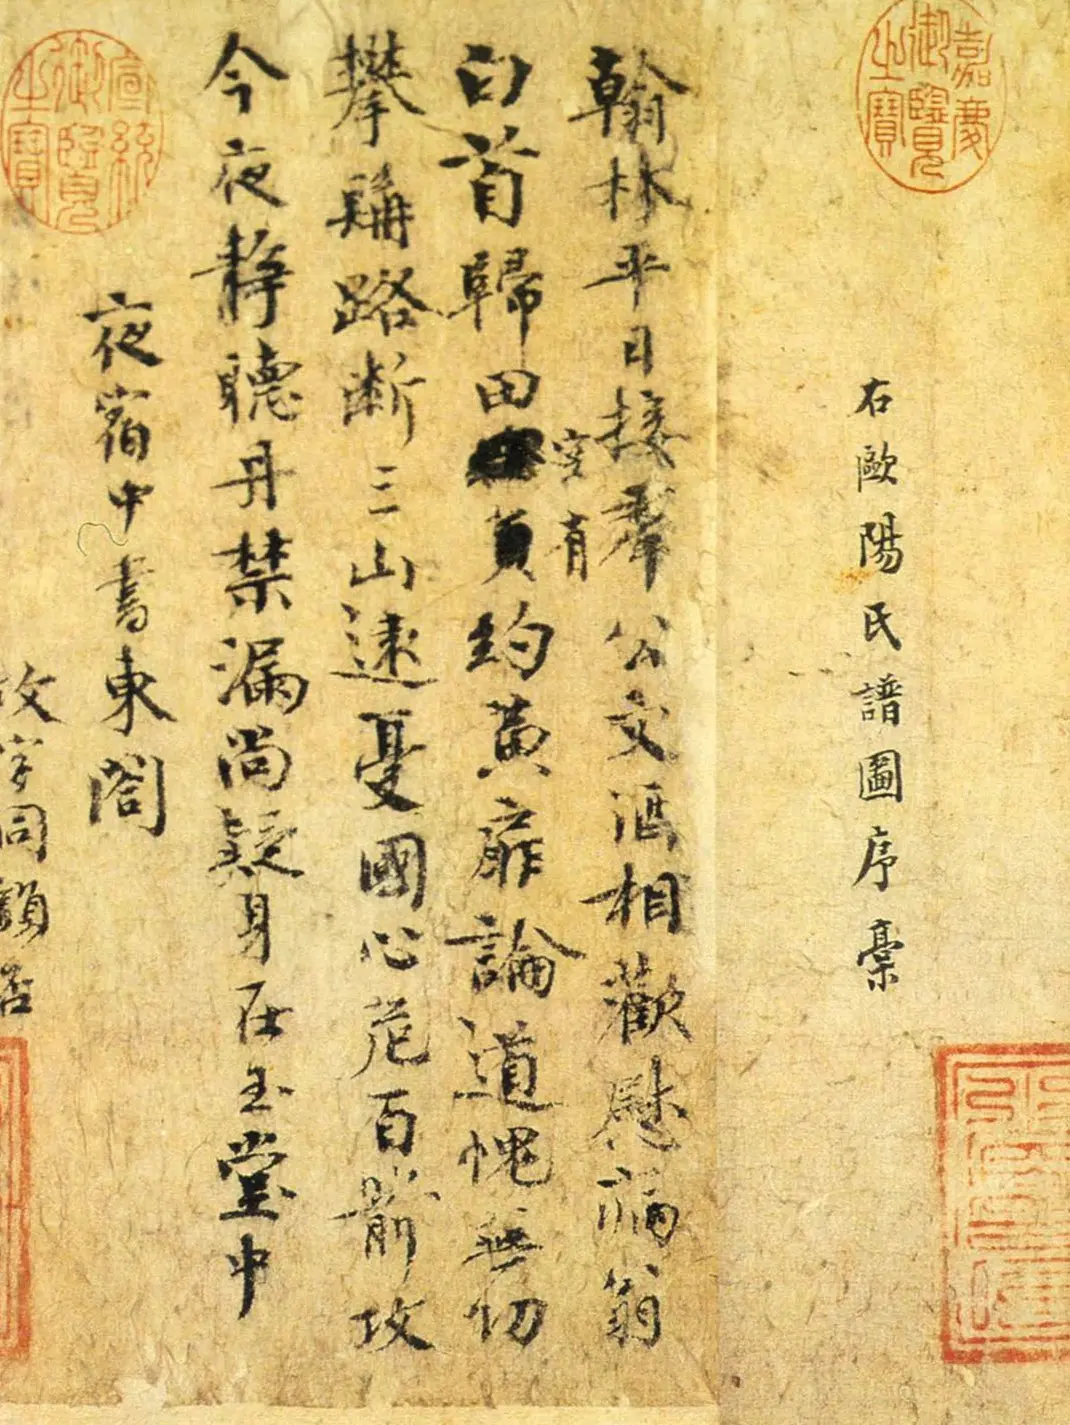 嘉慶御覽之寶
右歐陽氏譜圖序稾
翰林平日接羣公文酒相歡慰病翁
空有
白首歸田約黃扉論道愧無功
攀髯路斷三山遠憂國心危百箭攻
今夜靜聽丹禁漏尚疑身在玉堂中
夜宿中書東閤
攻字同韻否
宣統御覽之寶